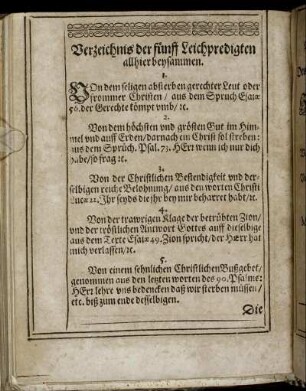 Verzeichnis der fünff Leichpredigten
allhier beysammen.
1.
VOn dem seligen absterben gerechter Leut oder
frommer Christen / aus dem Spruch Esaiæ
56. der Gerechte kömpt vmb / ꝛc.
2.
Von dem höchsten vnd grösten Gut im Him
mel vnd auff Erden / darnach ein Christ sol streben:
aus dem Sprüch. Psal. 73. HErr wenn ich nur dich
habe / so frag ꝛc.
3.
Von der Christlichen Bestendigkeit vnd der-
selbigen reiche Belohnung / aus den worten Christi
Lucæ 22. Ihr seyds die jhr bey mir beharret habt / ꝛc.
4.
Von der trawrigen Klage der betrübten Zion /
vnd der tröstlichen Antwort Gottes auff dieselbige
aus dem Texte Esaiæ 49. Zion spricht / der HErr hat
mich verlassen / ꝛc.
5.
Von einem sehnlichen Christlichen Bußgebet /
genommen aus den letzten worten des 90. Psalms:
HErr lehre vns bedencken daß wir sterben müssen /
etc. biß zum ende desselbigen.
Die